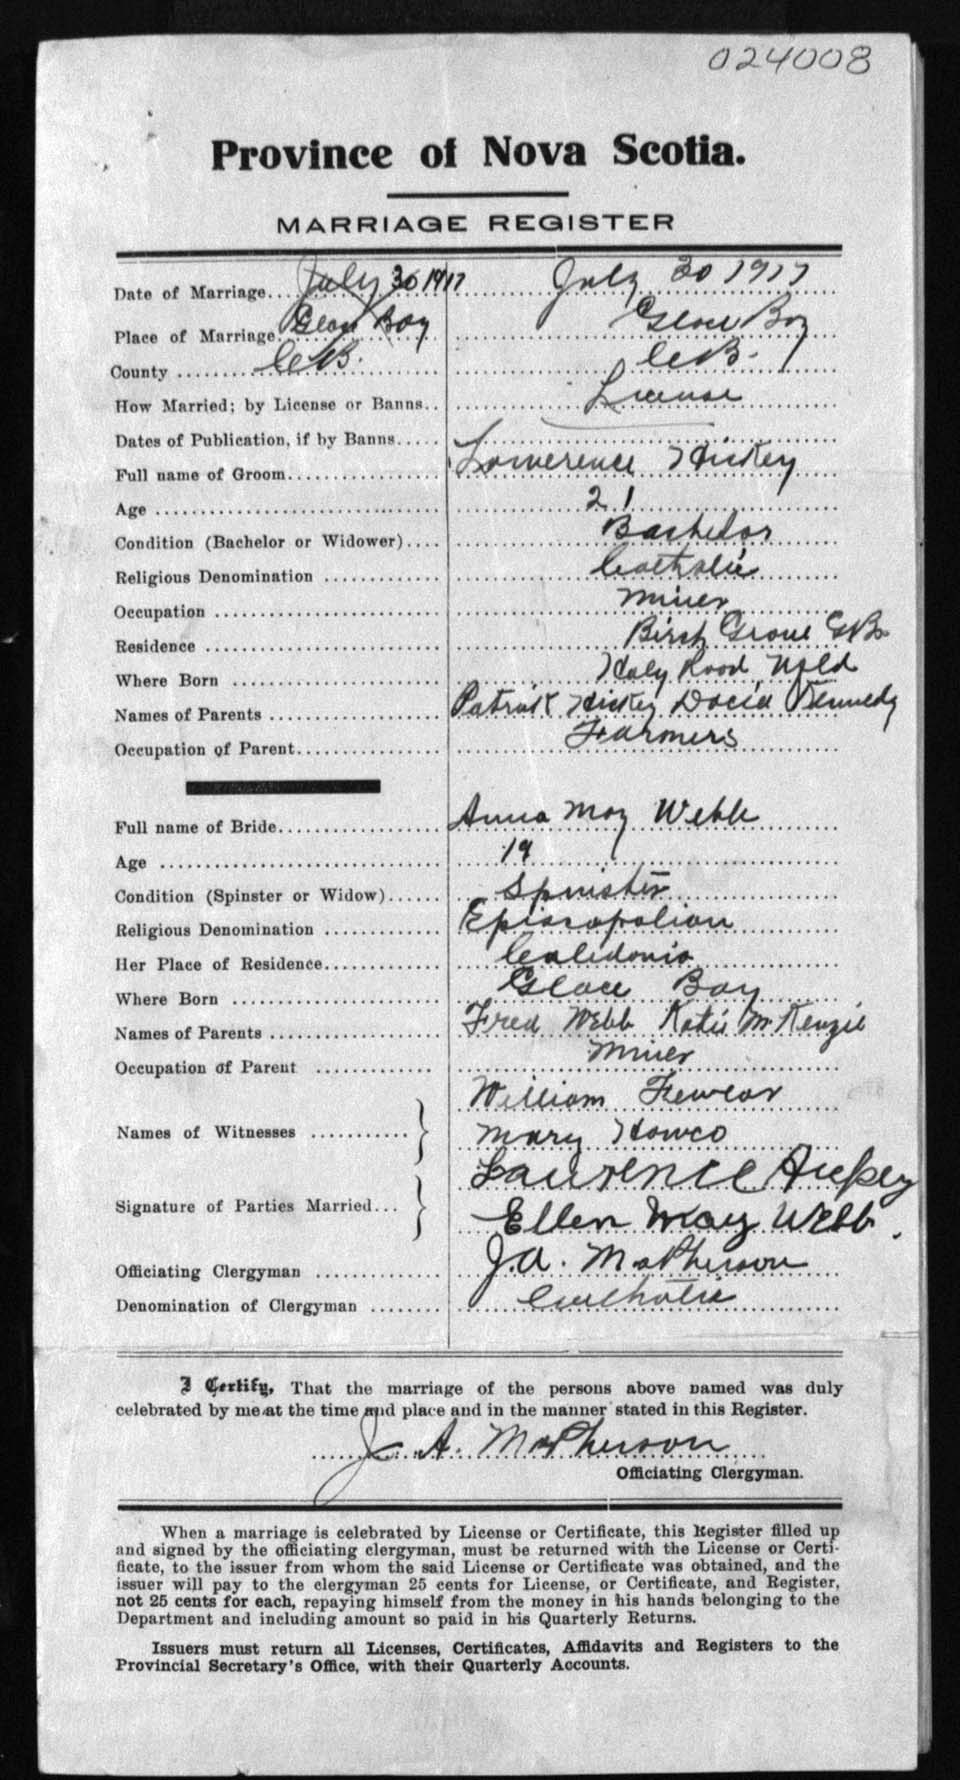 024008
Province of Nova Scotia.
MARRIAGE REGISTER
Date of Marriage.. July 30 1917 July 30 1917
Place of Marriage. Glace Bay Glace Bay
County C.B. C.B.
How Married; by License or Banns.. License
Dates of Publication, if by Banns.....
Full name of Groom Lawerence Hickey
Age 21
Condition (Bachelor or Widower).... Bachelor
Religious Denomination Catholic
Occupation Miner
Residence Birch Grove C.B.
Where Born Holy Rood Nfld
Names of Parents Patrick Hickey Kennedy
Occupation of Parent Farmers
Full name of Bride Anna May Webb
Age 19
Condition (Spinster or Widow)...... Spinster
Religious Denomination Episcopalian
Her Place of Residence Caledonia
Where Born Glace Bay
Names of Parents Fred Webb Katie McKenzie
Occupation of Parent Miner
William
Names of Witnesses Mary Howco
Laurence Hickey
Signature of Parties Married... Ellen May Webb.
Officiating Clergyman J.A. MacPherson
Denomination of Clergyman Catholic
I Certify, That the marriage of the persons above named was duly
celebrated by me at the time and place and in the manner stated in this Register.
J. A. MacPherson
Officiating Clergyman.
When a marriage is celebrated by License or Certificate, this Register filled up
and signed by the officiating clergyman, must be returned with the License or Certi-
ficate, to the issuer from whom the said License or Certificate was obtained, and the
issuer will pay to the clergyman 25 cents for License, or Certificate, and Register,
not 25 cents for each, repaying himself from the money in his hands belonging to the
Department and including amount so paid in his Quarterly Returns.
Issuers must return all Licenses, Certificates, Affidavits and Registers to the
Provincial Secretary's Office, with their Quarterly Accounts.